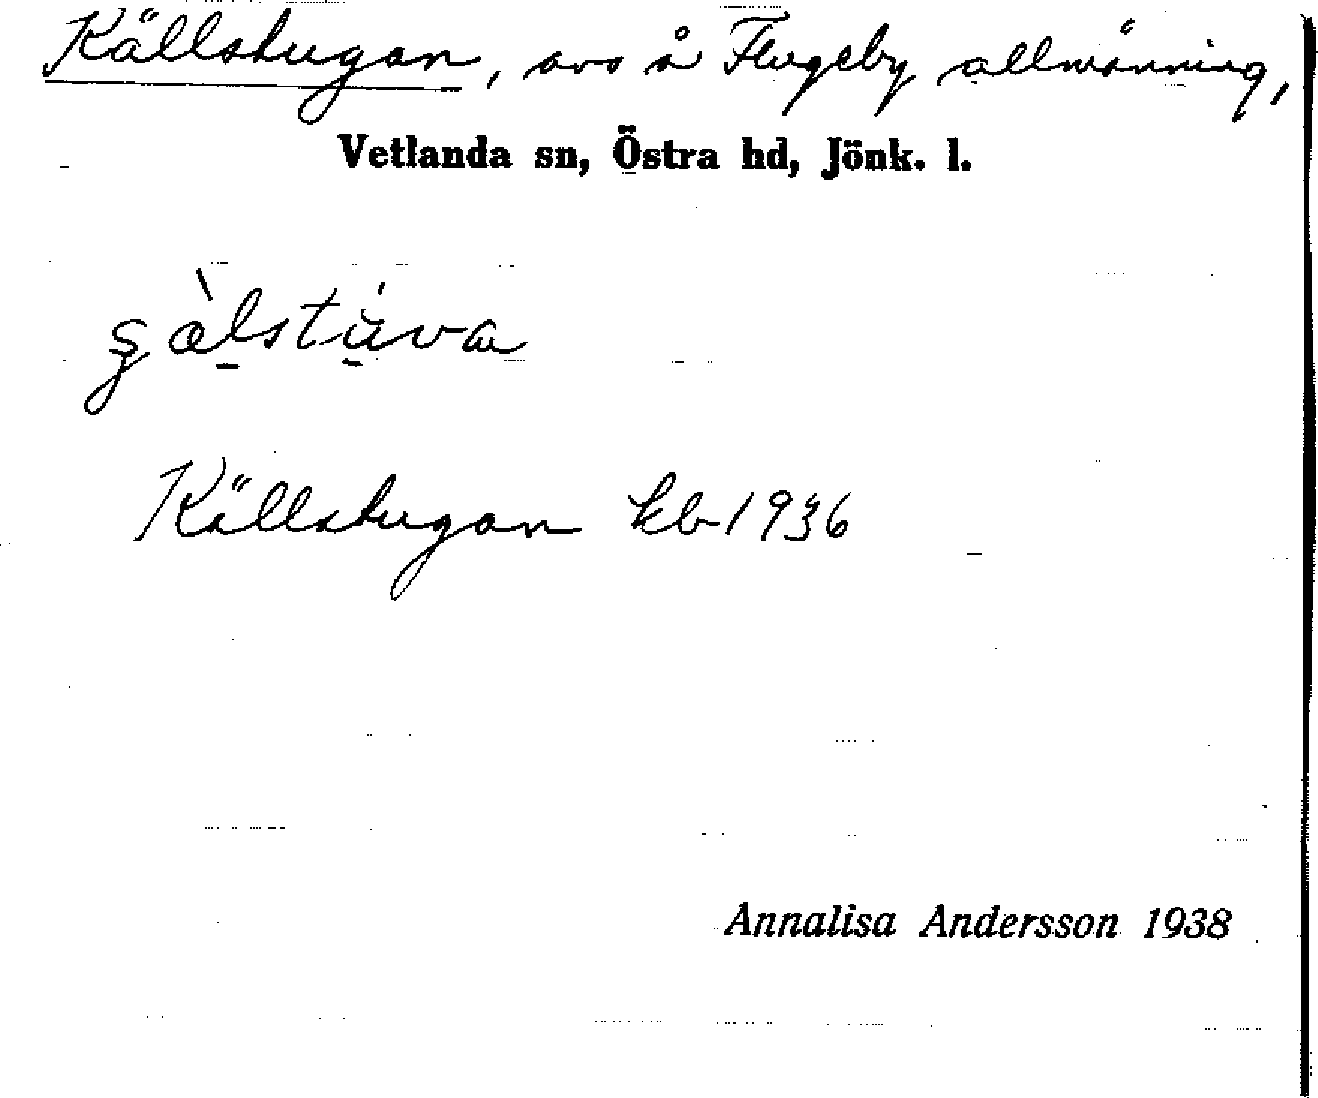 Källstugan, avs å Flugeby allmänning,
Vetlanda sn, Östra hd, Jönk. l.
Källstugan kb 1936
Annalisa Andersson 1938